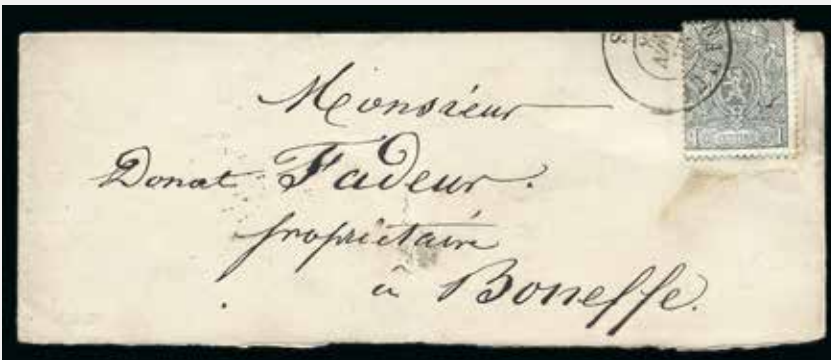 Monsieur
Donat Fadeur.
propriétaire
à Boneffe.
1 1